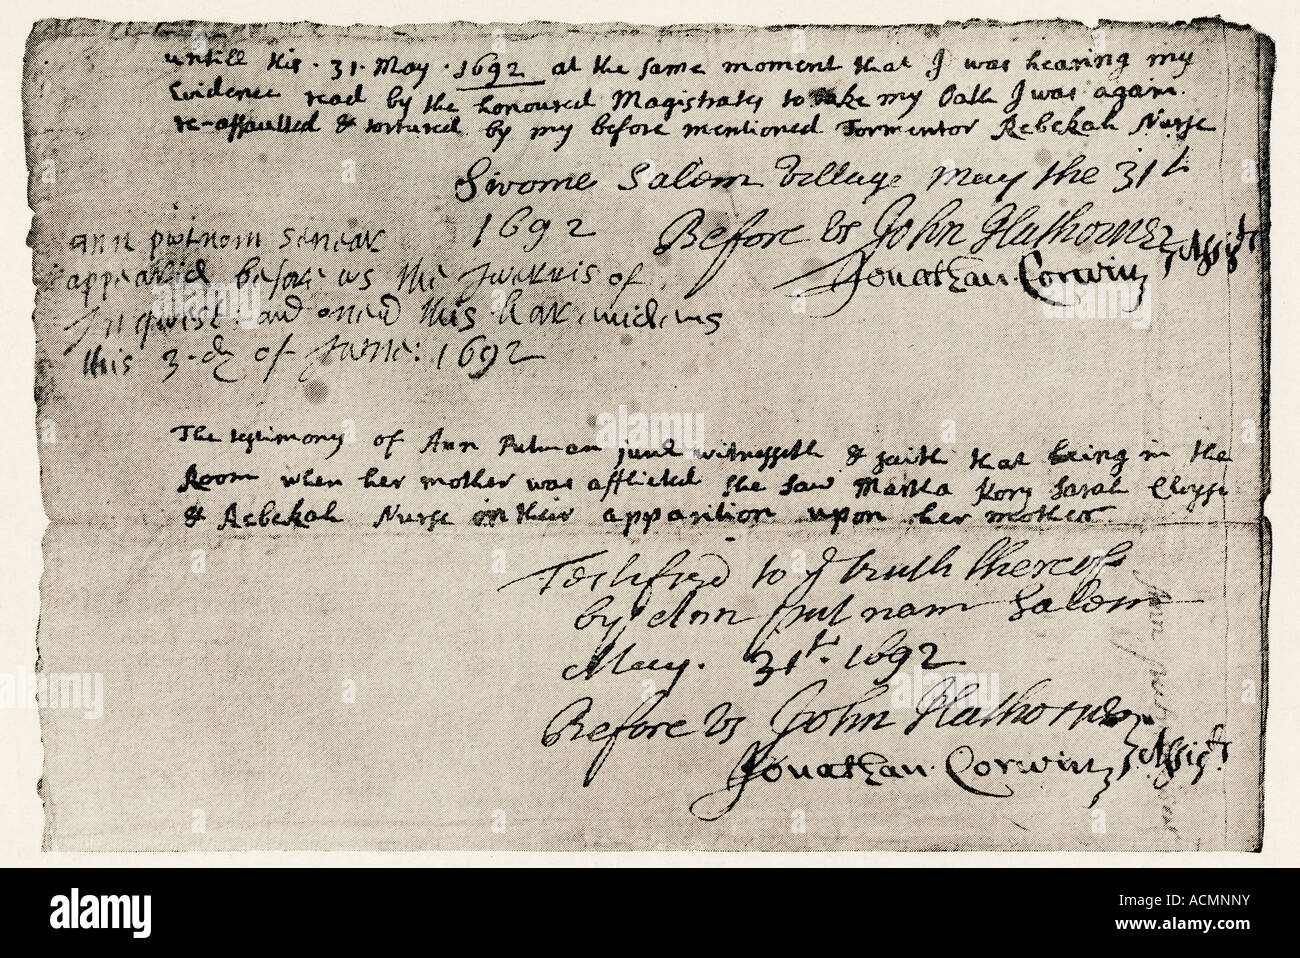 untill this · 31 · May · 1692 at the same moment that I was hearing my
Evidence read by the honoured Magistrates to take my Oath I was again
re-assaulted & tortured by my before mentioned Tormentor Rebekah Nurse
Sworne Salem Village May the 31t
1692
Before Us John Hathorne
Jonathan Corwin
Assists
ann putnam senear
appearid before us the
of
Inquest: and this har
this 3 dy of June: 1692
The testimony of Ann Putman junr witnesseth & saith that being in the
Room when her mother was afflicted she saw Martha Kory Sarah Cloyse
& Rebekah Nurse or their apparition upon her mother
Testified to ye truth thereof
by Ann putnam Salem
May. 31t. 1692
Before Us John Hathorne
Jonathan Corwin
Assists
alamy
Image ID: ACMNNY
www.alamy.com